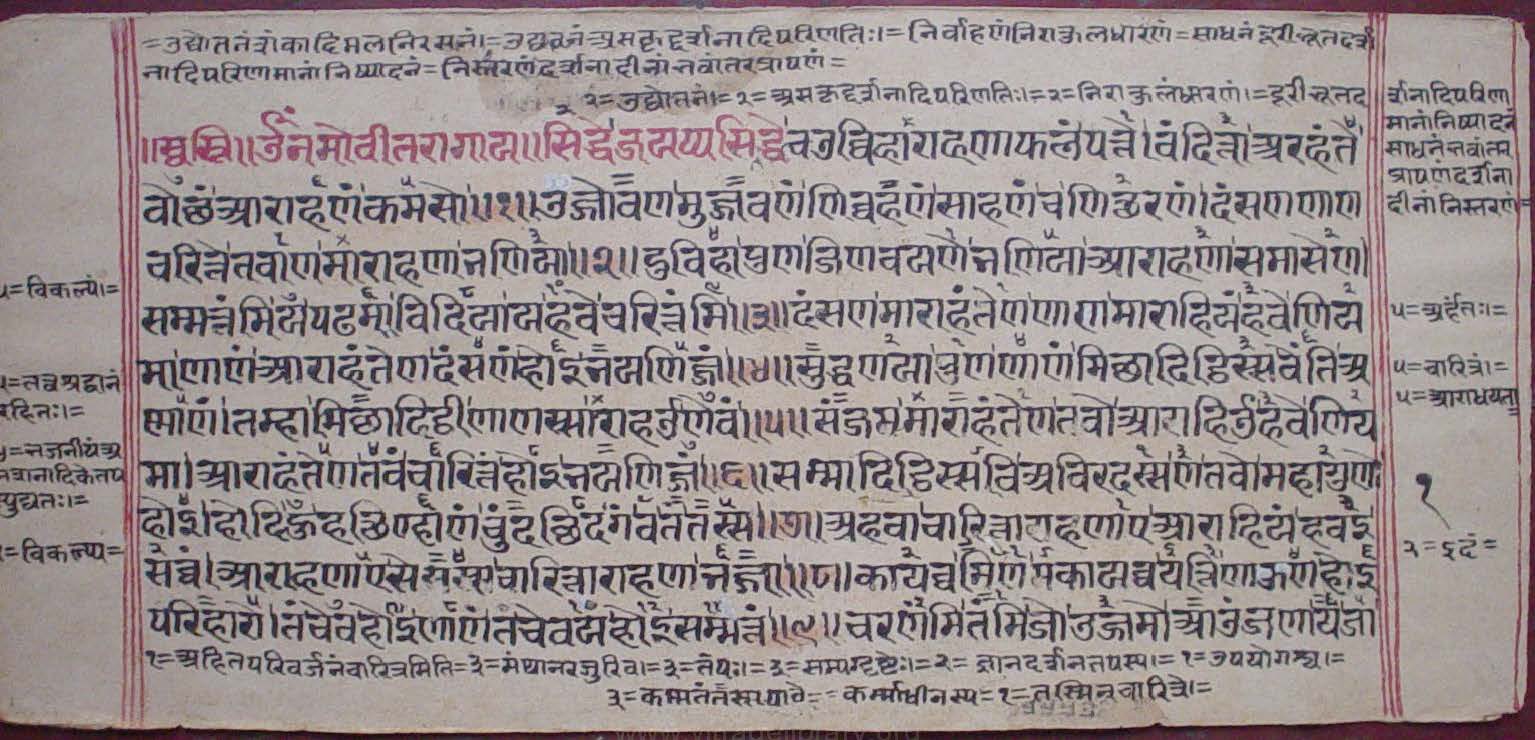 =उद्योतनं शंकादिमलनिरसनं।=उद्यवनं असकृद्दर्शनादिपरिणतिः।=निर्वाहणं निराकुलधारणं=साधनं दूरीभूतदर्श
नादिपरिणामानां निष्पादनं=निस्तरणं दर्शनादीनां भवांतरप्रापणं=
२ १=उद्योतनं।=१=असकृद्दर्शनादिपरिणतिः।=२=निराकुलंधारणं।=दूरीभूतद
र्शनादिपरिणा
मानां निष्पादनं
साधनं भवांतर
प्रापणं दर्शना
दीनां निस्तरणं=
॥स्वस्ति॥ उँ नमो वीतरागाय॥ सिद्धे जयप्पसिद्धे चउव्विहाराहणाफलं पत्ते। वंदित्ता अरहंते
वोछं आराहणं कमसो॥१॥ उज्जोवणमुज्जवणं णिव्वहणं साहणं च णिछरणं। दंसणणाण
चरित्ततवाणमाराहणा भणिया॥२॥ दुविहा पुण जिणवयणे भणिया आराहणा समासेण।
सम्मत्तंमि य पढमा विदिया य हवे चरित्तंमि॥३॥ दंसणमाराहंतेण णाणमाराहियं हवे णिय
मा णाणं आराहंतेण दंसणं होइ भयणिज्जं॥४॥ सुद्धणया पुण णाणं मिछादिट्ठिस्स वेंति अ
ण्णाणं। तम्हा मिछादिट्ठी णाणस्साराहउ णेवं॥५॥ संजममाराहंतेण तवो आराहिउ हवे णिय
मा। आराहंतेण तवं चारित्तं होइ भयणिज्जं॥६॥ सम्मादिट्ठिस्स वि अविरदस्स ण तवो महागुणो
होइ। होदि हु हछिण्हाणं चुंदछिदगं व तं तस्स॥७॥ अहवा चारित्ताराहणाए आराहियं हवइ
सव्वं। आराहणाए सेसस्स चारित्ताराहणा भज्जा॥८॥ कायव्वमिणमकायव्वयत्ति णाऊण होइ
परिहारो। तं चेव होइ णाणं तं चेव य होइ सम्मत्तं॥९॥ चरणंमि तंमि जो उज्जमो आउंजणा य जो
५=विकल्प्यं।=
५=तत्वश्रद्धानं
रहितः।=
५=भजनीयं अ
१=विकल्प्य=
५=अर्हतः।=
५=चारित्रं।=
५=आराधयता
१
२=इदं=
१=अहितपरिवर्जनं चारित्रमिति=३=मंथानरजुरिव।=३=तपः।=३=सम्यग्दृष्टेः।=२=ज्ञानदर्शनतपस्य।=१=उपयोगश्च।=
कर्माधीनस्य=१=तस्मिन् चारित्रे।=